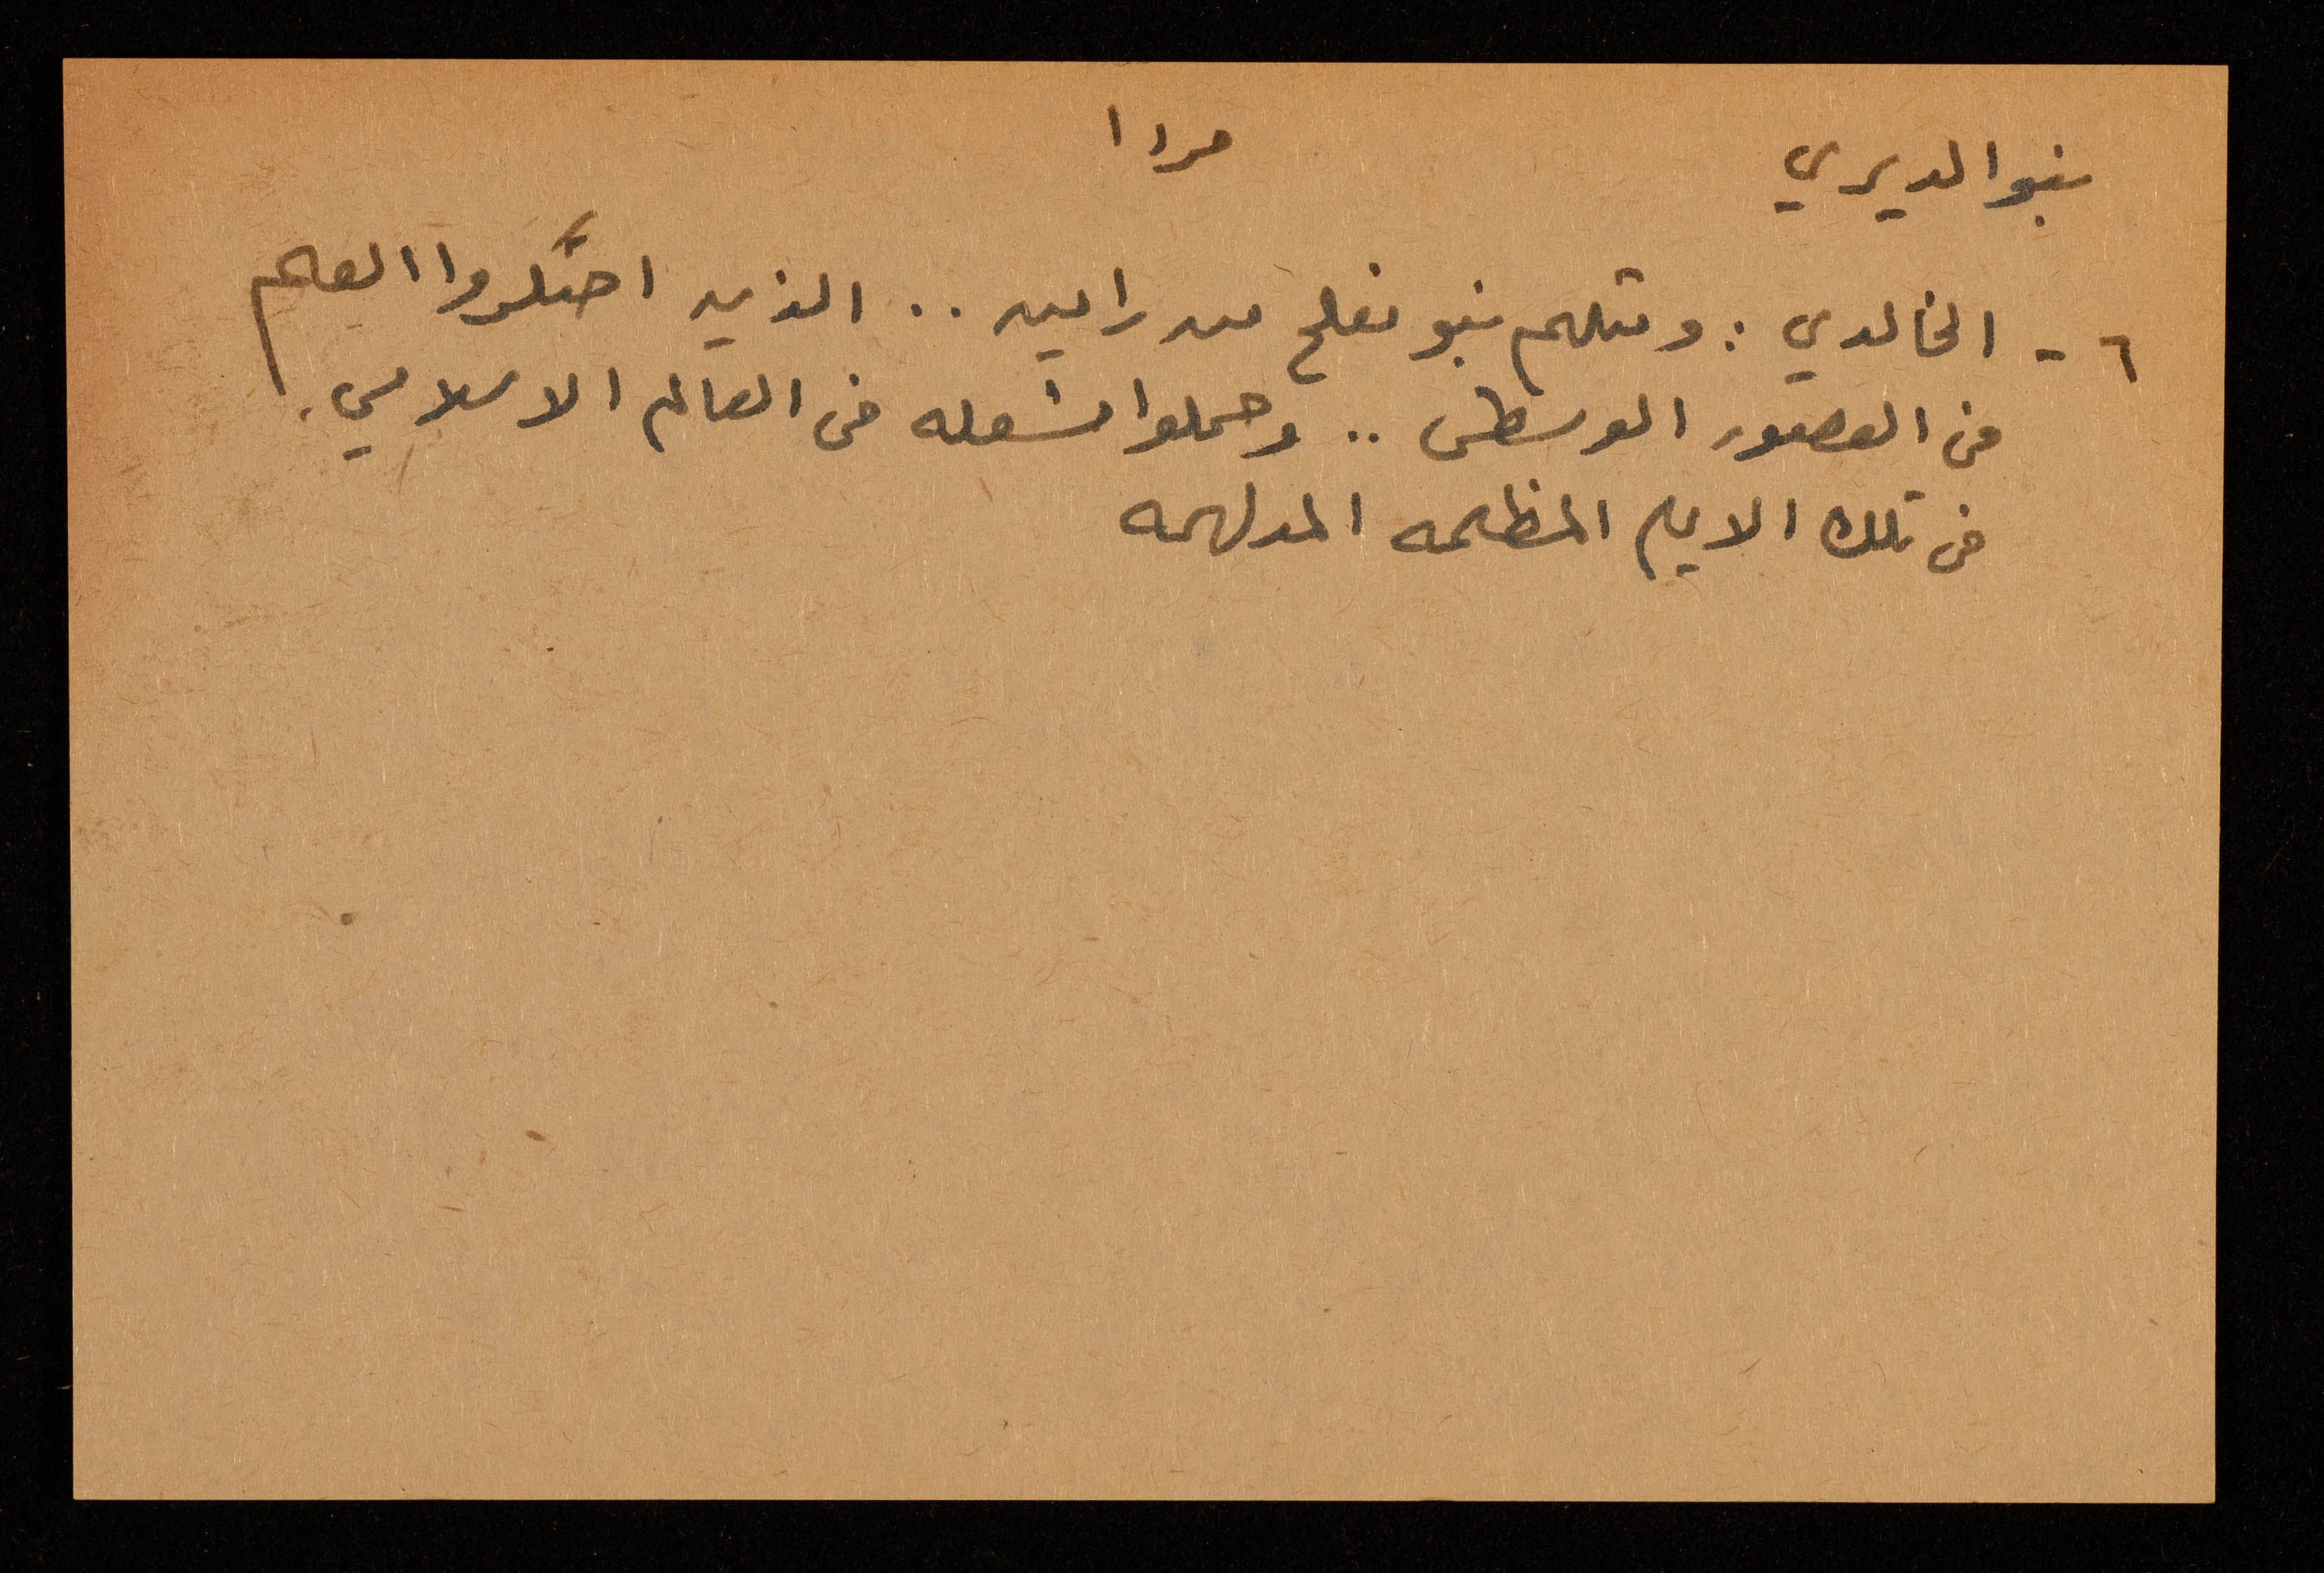 بنو الديري
مردا
٦ - الخالدي : ومثلهم بنو مفلح من رامين .. الذين احتكروا العلم
في العصور الوسطى .. وحملوا مشعله في العالم الاسلامي .
في تلك الايام المظلمه المدلهمه